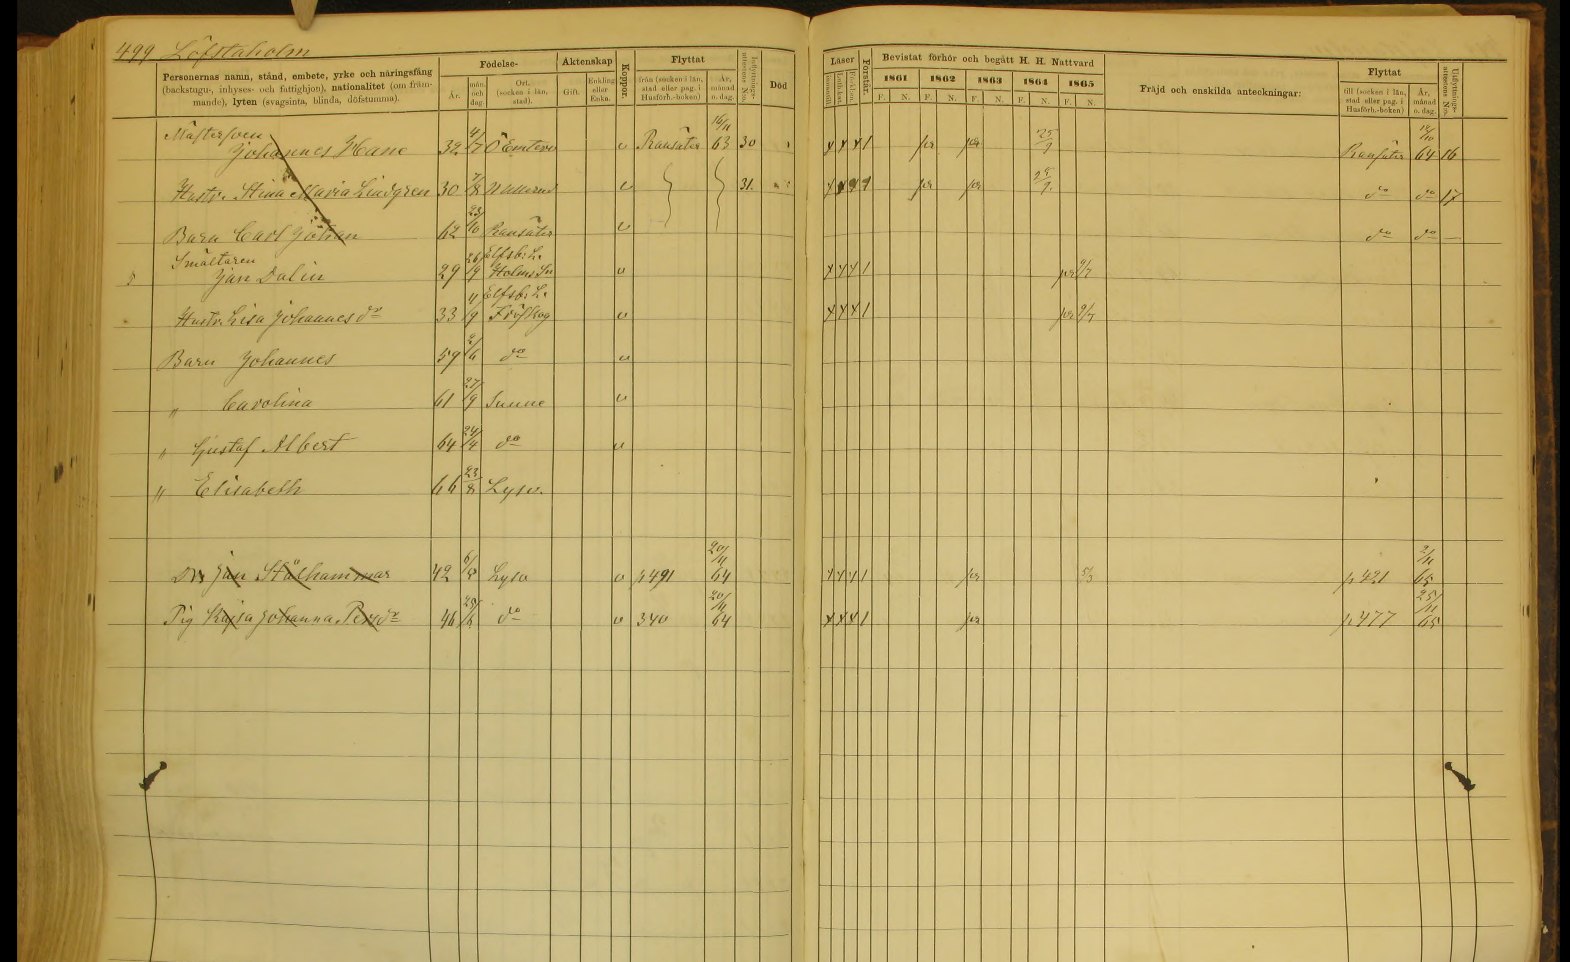 499 Löfstaholm
Personernas namn, stånd, embete, yrke och näringsfång
(backstugu-, inhyses- och fattighjon), nationalitet (om främ-
mande), lyten (svagsinta, blinda, döfstumma).
Födelse-
År.
mån. och dag.
Ort. (socken i län, stad).
Aktenskap
Gift.
Enkling eller Enka.
Koppor.
Flyttat
från (socken i län, stad eller pag. i Husförh.-boken)
År, månad o. dag.
Inflyttnings-attestens N:o
Död
Läser
Förstår.
Bevistat förhör och begått H. H. Nattvard
1861 1862 1863 1864 1865
F. N. F. N. F. N. F. N. F. N.
Fräjd och enskilda anteckningar:
Flyttat
till (socken i län, stad eller pag. i Husförh.-boken)
År, månad o. dag.
Utflyttnings-attestens N:o
Mästersven
Johannes Hane 32 4/7 Ö Emterv Ransäter 16/11 63 30 25/9 Ransäter 64 16
Hustr. Stina Maria Lindgren 30 7/8 31. do do 17
Barn Carl Johan 62 23/10 Ransäter do do
Smältaren
Jan Dalin 29 26/9 Elfsb: L. Holms Sn 9/7
Hustr. Lisa Johannesdr 33 4/9 Elfsb: L. Fröskog 9/7
Barn Johannes 59 do
" Carolina 61 27/9 Sunne
" Gustaf Albert 64 24/4 do
" Elisabeth 66 23/8 Lysv.
Dr. Jan Stålhammar 42 6/8 Lysv p 491 20/11 64 5/3 p 421 2/11 65
Pig Kajsa Johanna Persdr 46 25/6 do 340 20/11 64 p 477 25/11 65